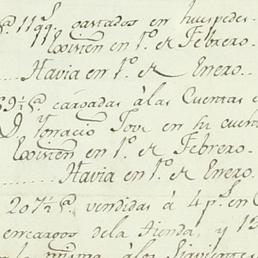 11 qq. gastados en huespedes.
Existen en 1º. de Febrero.
Havia en 1º. de Enero.
69½ @. cargadas à las Cuentas
D. Ygnacio Tove en su cuent
Existen en 1º. de Febrero.
Havia en 1º. de Enero.
207½ @. vendidas à 4 ps. en
encargos de la tienda, y 13
la misma, à los siguientes